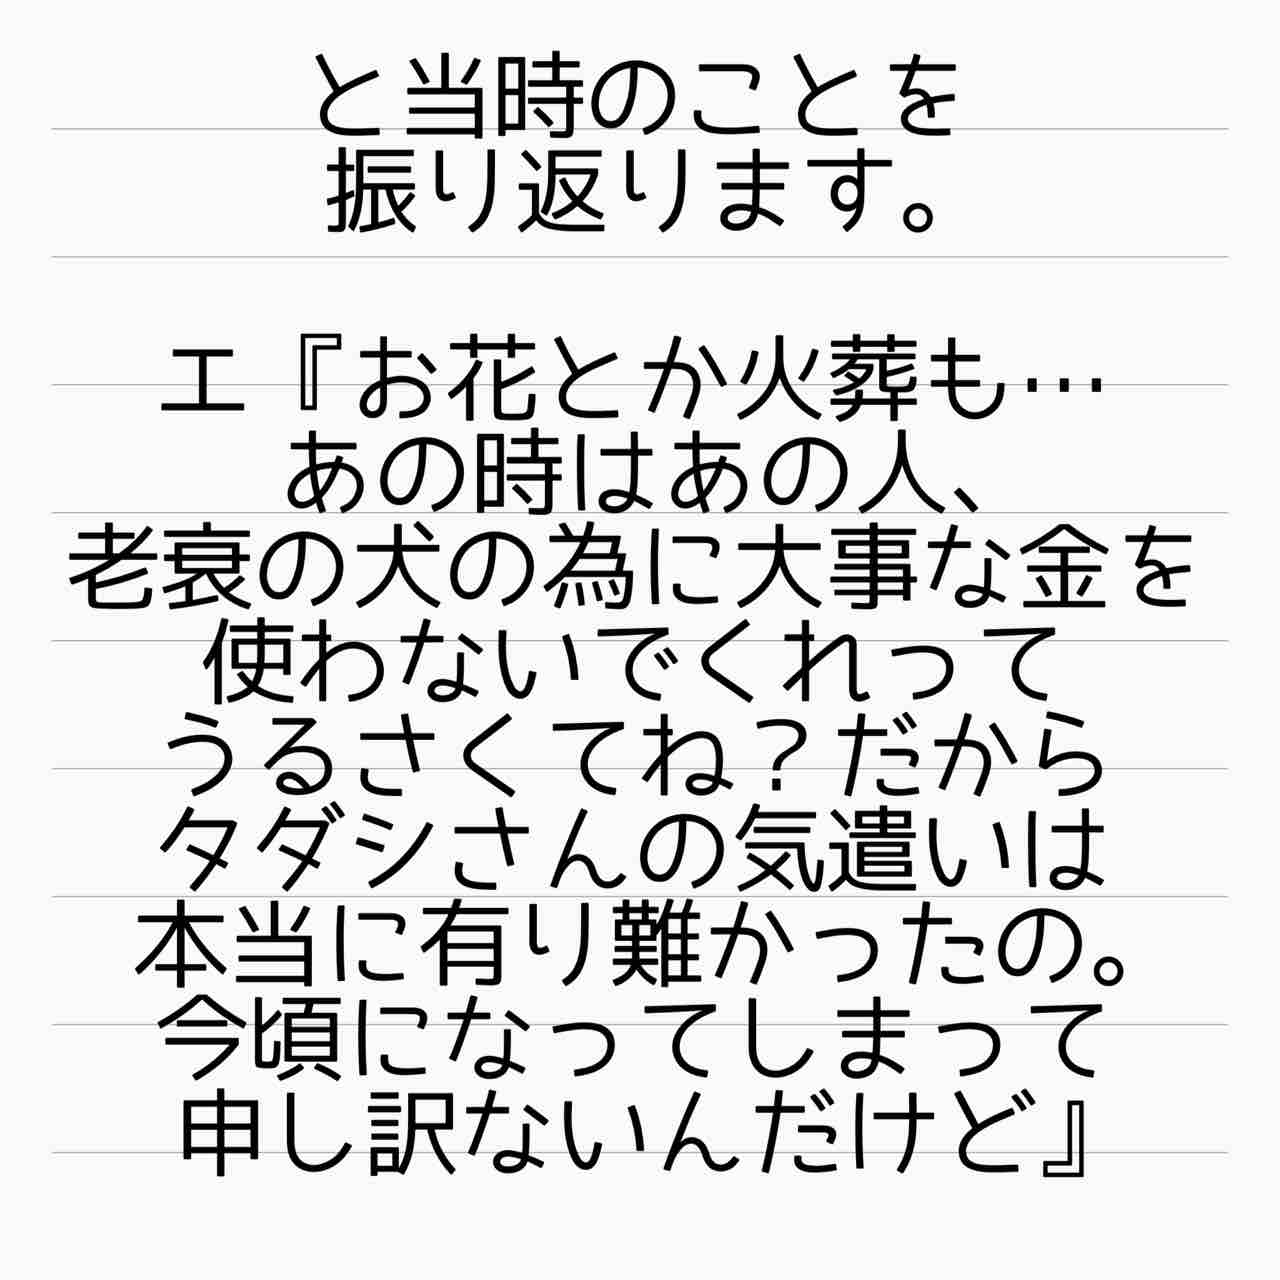 と当時のことを
振り返ります。
エ『お花とか火葬も…
あの時はあの人、
老衰の犬の為に大事な金を
使わないでくれって
うるさくてね？だから
タダシさんの気遣いは
本当に有り難かったの。
今頃になってしまって
申し訳ないんだけど』